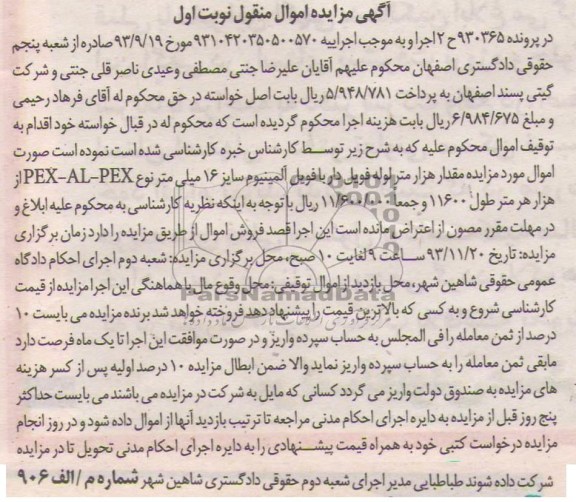 آگهی مزایده اموال منقول نوبت اول
در پرونده ۹۳۰۳۶۵ح ۲اجرا و به موجب اجراییه ۹۳۱۰۴۲۰۳۵۰۵۰۰۵۷۰ مورخ ۹۳/۹/۱۹ صادره از شعبه پنجم
حقوقی دادگستری اصفهان محکوم علیهم آقایان علیرضا جنتی مصطفی وعیدی ناصر قلی جنتی و شرکت
گیتی پسند اصفهان به پرداخت ۵/۹۴۸/۷۸۱ ریال بابت اصل خواسته در حق محکوم له آقای فرهاد رحیمی
و مبلغ ۶/۹۸۴/۶۷۵ ریال بابت هزینه اجرا محکوم گردیده است که محکوم له در قبال خواسته خود اقدام به
توقیف اموال محکوم علیه که به شرح زیر توسط کارشناس خبره کارشناسی شده است نموده است صورت
اموال مورد مزایده مقدار هزار متر لوله فویل دار با فویل آلمینیوم سایز ۱۶ میلی متر نوع PEX-AL-PEX از
هزار هر متر طول ۱۱۶۰۰ و جمعا: ۱۱/۶۰۰/۰۰۰ ریال با توجه به اینکه نظریه کارشناسی به محکوم علیه ابلاغ و
در مهلت مقرر مصون از اعتراض مانده است این اجرا قصد فروش اموال از طریق مزایده را دارد زمان برگزاری
مزایده: تاریخ ۹۳/۱۱/۲۰ ساعت ۹ لغایت ۱۰ صبح، محل برگزاری مزایده: شعبه دوم اجرای احکام دادگاه
عمومی حقوقی شاهین شهر، محل بازدید از اموال توقیفی: محل وقوع مال با هماهنگی این اجرا مزایده از قیمت
کارشناسی شروع و به کسی که بالاترین قیمت را پیشنهاد دهد فروخته خواهد شد برنده مزایده می بایست ۱۰
درصد از ثمن معامله را فی المجلس به حساب سپرده واریز و در صورت موافقت این اجرا تا یک ماه فرصت دارد
مابقی ثمن معامله را به حساب سپرده واریز نماید والا ضمن ابطال مزایده ۱۰ درصد اولیه پس از کسر هزینه
های مزایده به صندوق دولت واریز می گردد کسانی که مایل به شرکت در مزایده می باشند می بایست حداکثر
پنج روز قبل از مزایده به دایره اجرای احکام مدنی مراجعه تا ترتیب بازدید آنها از اموال داده شود و در روز انجام
مزایده درخواست کتبی خود به همراه قیمت پیشنهادی را به دایره اجرای احکام مدنی تحویل تا در مزایده
شرکت داده شوند طباطبایی مدیر اجرای شعبه دوم حقوقی دادگستری شاهین شهر شماره م/الف ۹۰۶
ParsNamadData